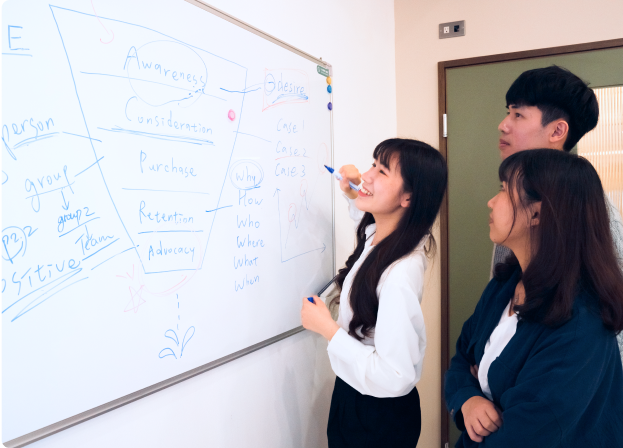 E
person
group
group2
Team
Positive
Awareness
Consideration
Purchase
Retention
Advocacy
desire
Case 1
Case 2
Case 3
why
How
Who
Where
What
When